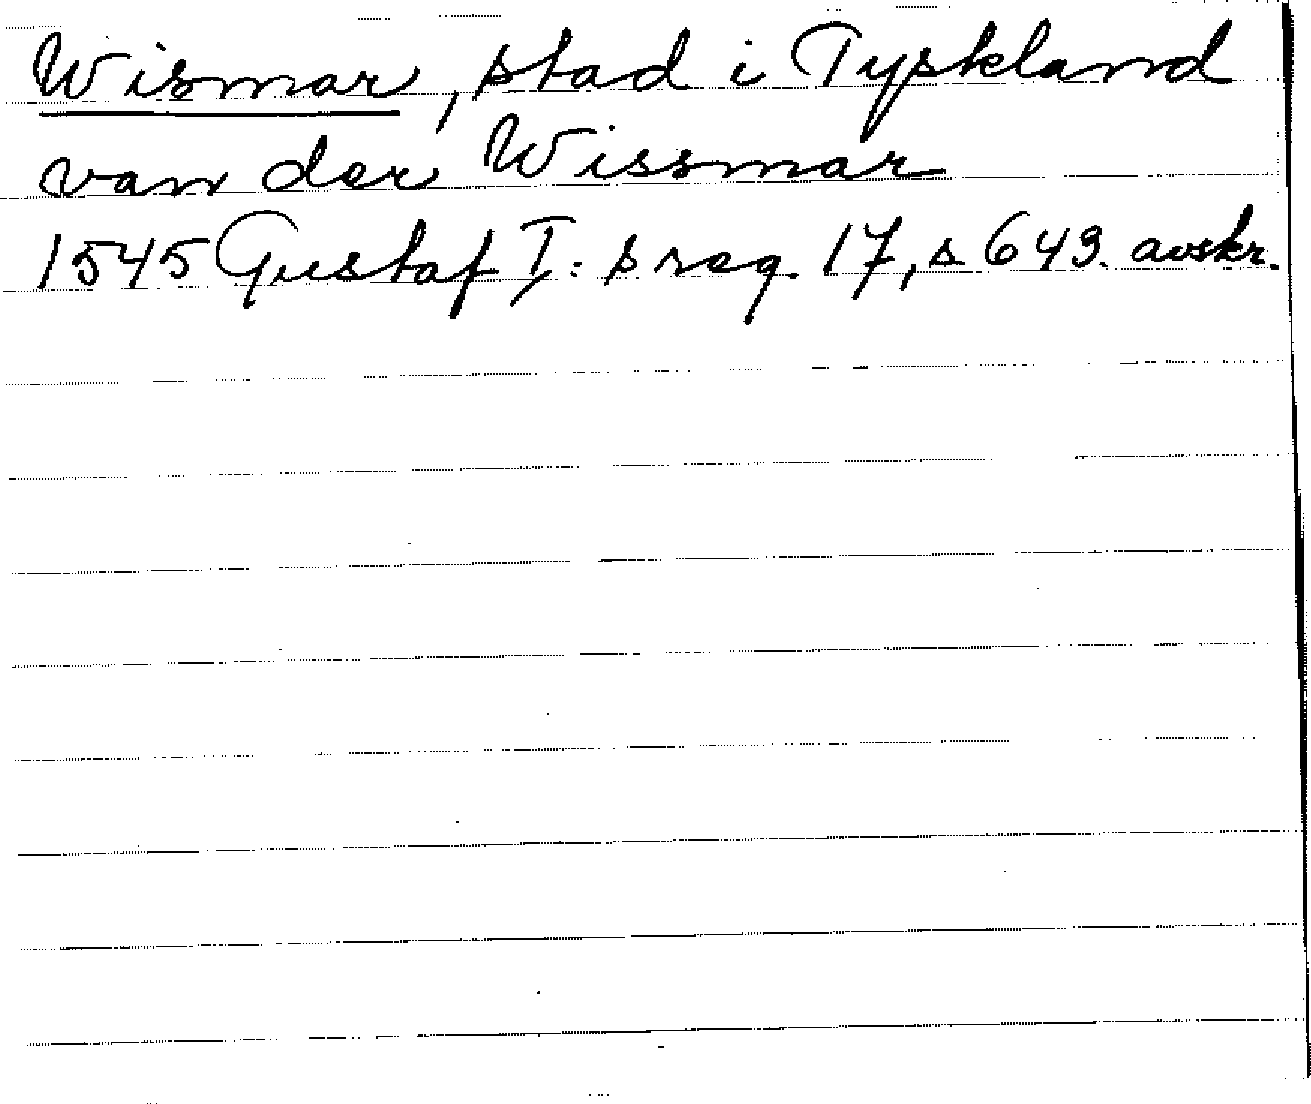 Wismar, stad i Tyskland
van der Wissmar
1545 Gustaf I:s reg. 17, s 643. avskr.